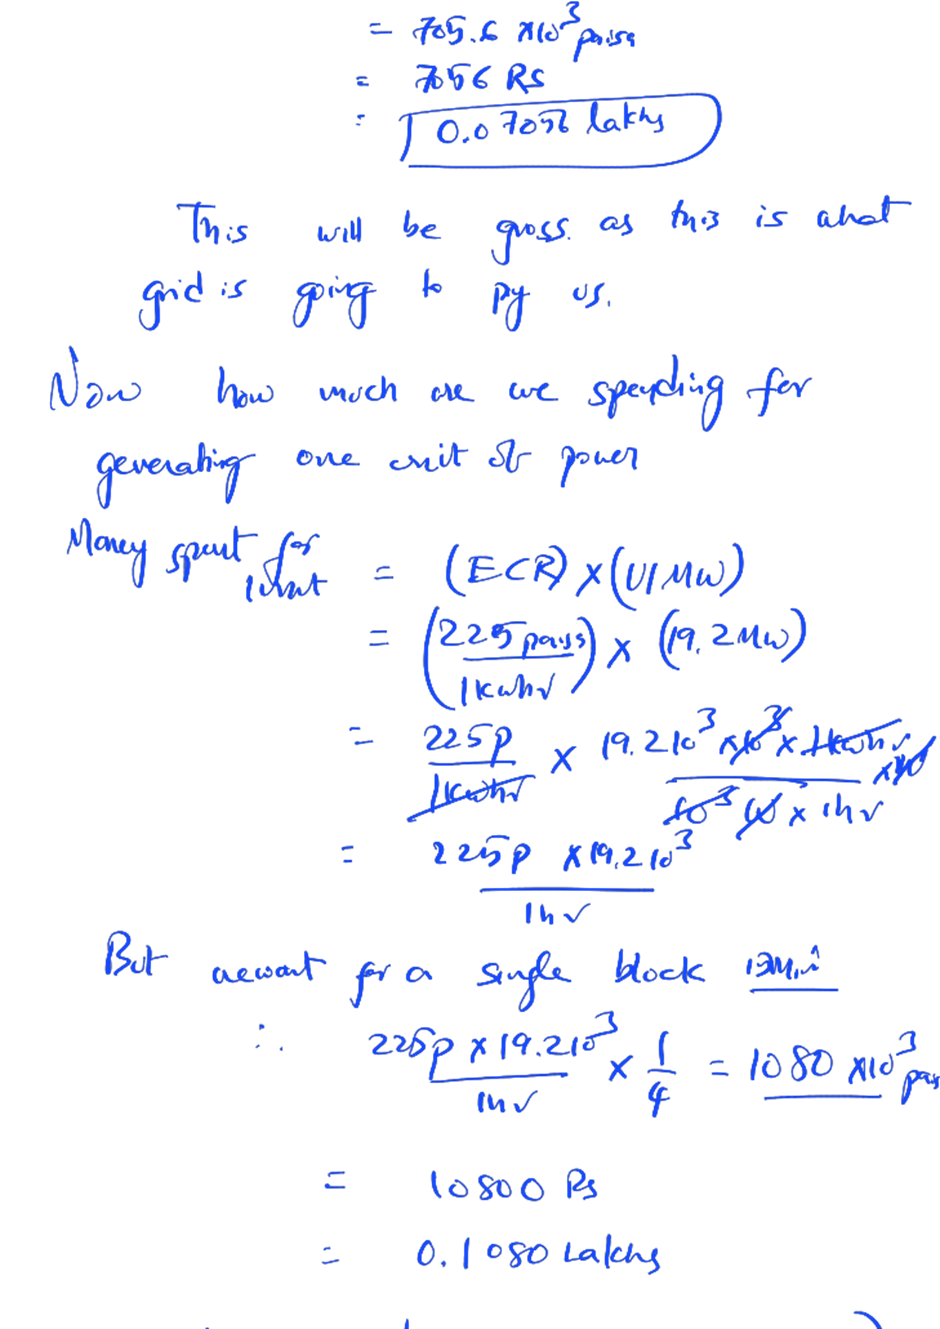 = 705.6 x10³ paisa
= 7056 RS
= 0.07056 lakhs
This will be gross. as this is what
grid is going to py us.
Now how much are we spending for
generating one unit of power
Money spent for
1 unit = (ECR) x (UI MW)
= (225 paiss / 1 kwhr) x (19.2 MW)
= 225p / 1kwhr x 19.2 10³ x 10³ x 1kwhr x 10 / 10³ 10 x 1hr
= 225p x 19.2 10³ / 1hr
But we want for a single block 15Min
∴ 225p x 19.2 10³ / 1hr x 1/4 = 1080 x10³ pai
= 10800 Rs
= 0.1080 Lakhs